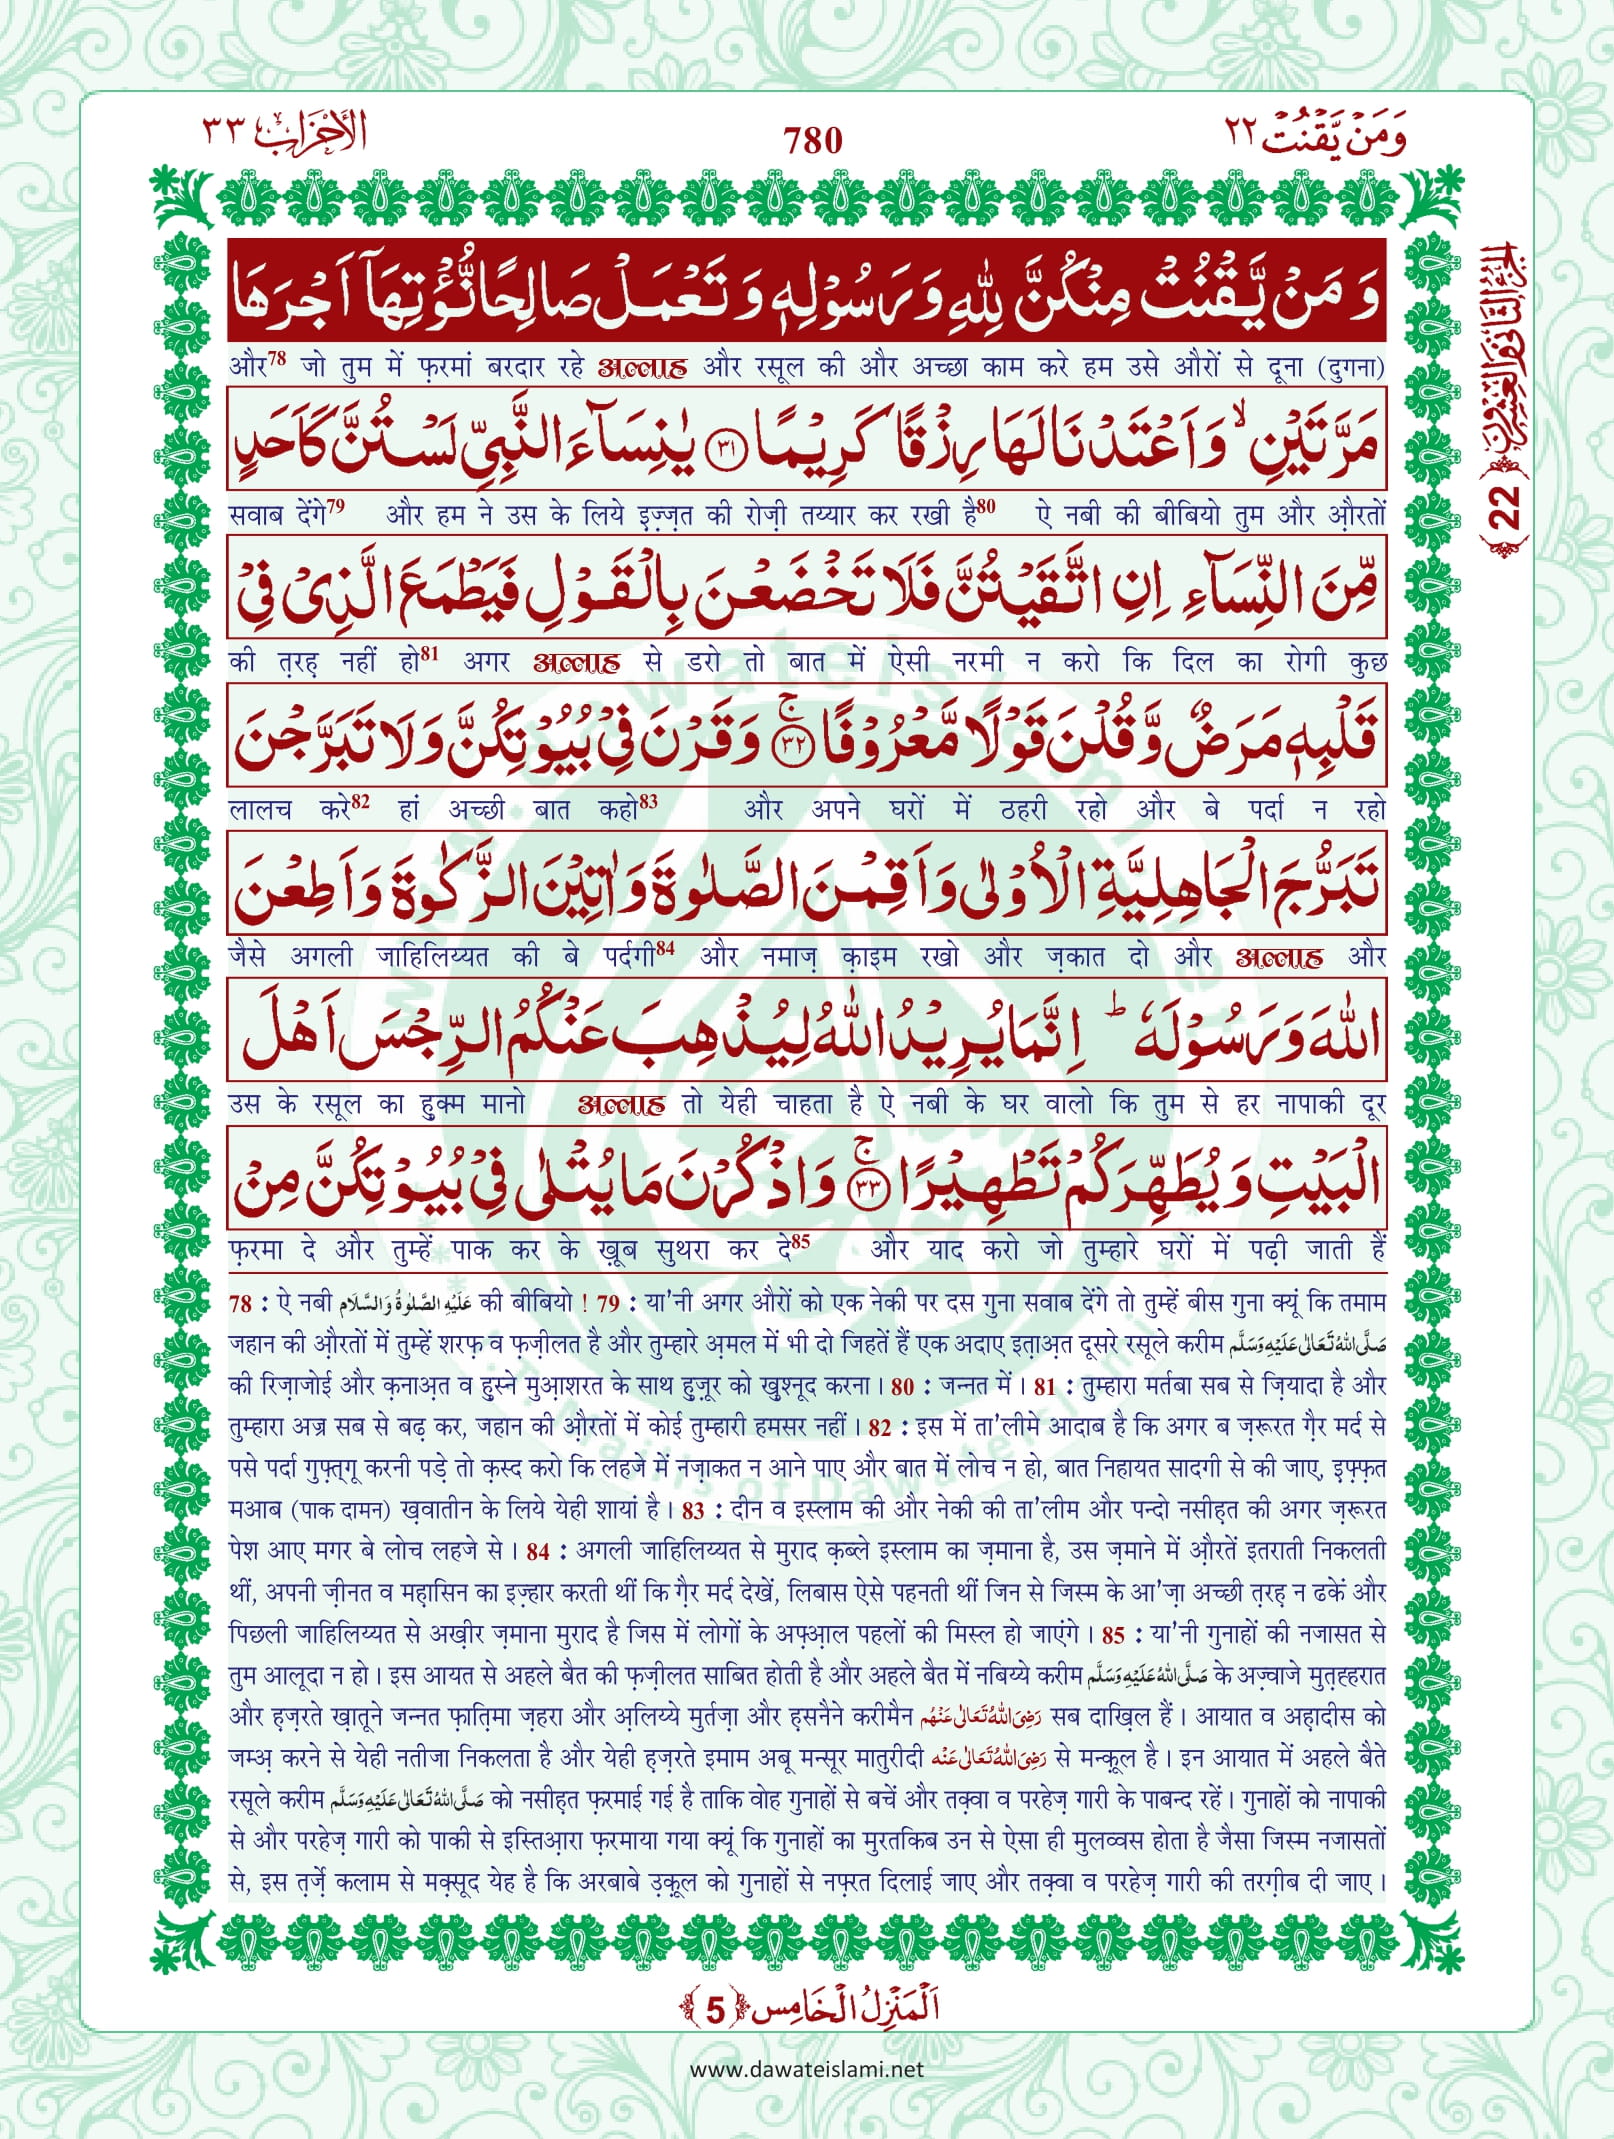 وَمَنْ يَّقْنُتْ ٢٢
780
الْاَحْزَاب ٣٣
اَلْجُزْءُ الثَّانِیْ وَالْعِشْرُوْنَ ﴿22﴾
وَ مَنْ یَّقْنُتْ مِنْكُنَّ لِلّٰهِ وَ رَسُوْلِهٖ وَ تَعْمَلْ صَالِحًا نُّؤْتِهَاۤ اَجْرَهَا
और78 जो तुम में फ़रमां बरदार रहे अल्लाह और रसूल की और अच्छा काम करे हम उसे औरों से दूना (दुगना)
مَرَّتَیْنِ ۙ وَ اَعْتَدْنَا لَهَا رِزْقًا كَرِیْمًا ﴿٣١﴾ یٰنِسَآءَ النَّبِیِّ لَسْتُنَّ كَاَحَدٍ
सवाब देंगे79 और हम ने उस के लिये इ़ज़्ज़त की रोज़ी तय्यार कर रखी है80 ऐ नबी की बीबियो तुम और औ़रतों
مِّنَ النِّسَآءِ اِنِ اتَّقَیْتُنَّ فَلَا تَخْضَعْنَ بِالْقَوْلِ فَیَطْمَعَ الَّذِیْ فِیْ
की त़रह़ नहीं हो81 अगर अल्लाह से डरो तो बात में ऐसी नरमी न करो कि दिल का रोगी कुछ
قَلْبِهٖ مَرَضٌ وَّ قُلْنَ قَوْلًا مَّعْرُوْفًا ﴿٣٢﴾ۚ وَ قَرْنَ فِیْ بُیُوْتِكُنَّ وَ لَا تَبَرَّجْنَ
लालच करे82 हां अच्छी बात कहो83 और अपने घरों में ठहरी रहो और बे पर्दा न रहो
تَبَرُّجَ الْجَاهِلِیَّةِ الْاُوْلٰى وَ اَقِمْنَ الصَّلٰوةَ وَ اٰتِیْنَ الزَّكٰوةَ وَ اَطِعْنَ
जैसे अगली जाहिलिय्यत की बे पर्दगी84 और नमाज़ क़ाइम रखो और ज़कात दो और अल्लाह और
اللّٰهَ وَ رَسُوْلَهٗ ؕ اِنَّمَا یُرِیْدُ اللّٰهُ لِیُذْهِبَ عَنْكُمُ الرِّجْسَ اَهْلَ
उस के रसूल का हुक्म मानो अल्लाह तो येही चाहता है ऐ नबी के घर वालो कि तुम से हर नापाकी दूर
الْبَیْتِ وَ یُطَهِّرَكُمْ تَطْهِیْرًا ﴿٣٣﴾ۚ وَ اذْكُرْنَ مَا یُتْلٰى فِیْ بُیُوْتِكُنَّ مِنْ
फ़रमा दे और तुम्हें पाक कर के ख़ूब सुथरा कर दे85 और याद करो जो तुम्हारे घरों में पढ़ी जाती हैं
78 : ऐ नबी عَلَیْهِ الصَّلٰوةُ وَالسَّلَام की बीबियो ! 79 : या'नी अगर औरों को एक नेकी पर दस गुना सवाब देंगे तो तुम्हें बीस गुना क्यूं कि तमाम
जहान की औ़रतों में तुम्हें शरफ़ व फ़ज़ीलत है और तुम्हारे अ़मल में भी दो जिहतें हैं एक अदाए इत़ाअ़त दूसरे रसूले करीम صَلَّی اللّٰهُ تَعَالٰی عَلَیْهِ وَسَلَّم
की रिज़ाजोई और क़नाअ़त व हुस्ने मुआ़शरत के साथ हुज़ूर को ख़ुश्नूद करना। 80 : जन्नत में। 81 : तुम्हारा मर्तबा सब से ज़ियादा है और
तुम्हारा अज्र सब से बढ़ कर, जहान की औ़रतों में कोई तुम्हारी हमसर नहीं। 82 : इस में ता'लीमे आदाब है कि अगर ब ज़रूरत ग़ैर मर्द से
पसे पर्दा गुफ़्त्गू करनी पड़े तो क़स्द करो कि लहजे में नज़ाकत न आने पाए और बात में लोच न हो, बात निहायत सादगी से की जाए, इ़फ़्फ़त
मआब (पाक दामन) ख़वातीन के लिये येही शायां है। 83 : दीन व इस्लाम की और नेकी की ता'लीम और पन्दो नसीह़त की अगर ज़रूरत
पेश आए मगर बे लोच लहजे से। 84 : अगली जाहिलिय्यत से मुराद क़ब्ले इस्लाम का ज़माना है, उस ज़माने में औ़रतें इतराती निकलती
थीं, अपनी ज़ीनत व मह़ासिन का इज़्हार करती थीं कि ग़ैर मर्द देखें, लिबास ऐसे पहनती थीं जिन से जिस्म के आ'ज़ा अच्छी त़रह़ न ढकें और
पिछली जाहिलिय्यत से अख़ीर ज़माना मुराद है जिस में लोगों के अफ़्आ़ल पहलों की मिस्ल हो जाएंगे। 85 : या'नी गुनाहों की नजासत से
तुम आलूदा न हो। इस आयत से अहले बैत की फ़ज़ीलत साबित होती है और अहले बैत में नबिय्ये करीम صَلَّی اللّٰهُ عَلَیْهِ وَسَلَّم के अज़्वाजे मुत़ह्हरात
और ह़ज़रते ख़ातूने जन्नत फ़ात़िमा ज़हरा और अ़लिय्ये मुर्तज़ा और ह़सनैने करीमैन رَضِیَ اللّٰهُ تَعَالٰی عَنْهُم सब दाख़िल हैं। आयात व अह़ादीस को
जम्अ़ करने से येही नतीजा निकलता है और येही ह़ज़रते इमाम अबू मन्सूर मातुरीदी رَضِیَ اللّٰهُ تَعَالٰی عَنْه से मन्क़ूल है। इन आयात में अहले बैते
रसूले करीम صَلَّی اللّٰهُ تَعَالٰی عَلَیْهِ وَسَلَّم को नसीह़त फ़रमाई गई है ताकि वोह गुनाहों से बचें और तक़्वा व परहेज़ गारी के पाबन्द रहें। गुनाहों को नापाकी
से और परहेज़ गारी को पाकी से इस्तिआ़रा फ़रमाया गया क्यूं कि गुनाहों का मुरतकिब उन से ऐसा ही मुलव्वस होता है जैसा जिस्म नजासतों
से, इस त़र्ज़े कलाम से मक़्सूद येह है कि अरबाबे उ़क़ूल को गुनाहों से नफ़्रत दिलाई जाए और तक़्वा व परहेज़ गारी की तरग़ीब दी जाए।
اَلْمَنْزِلُ الْخَامِس ﴿5﴾
www.dawateislami.net